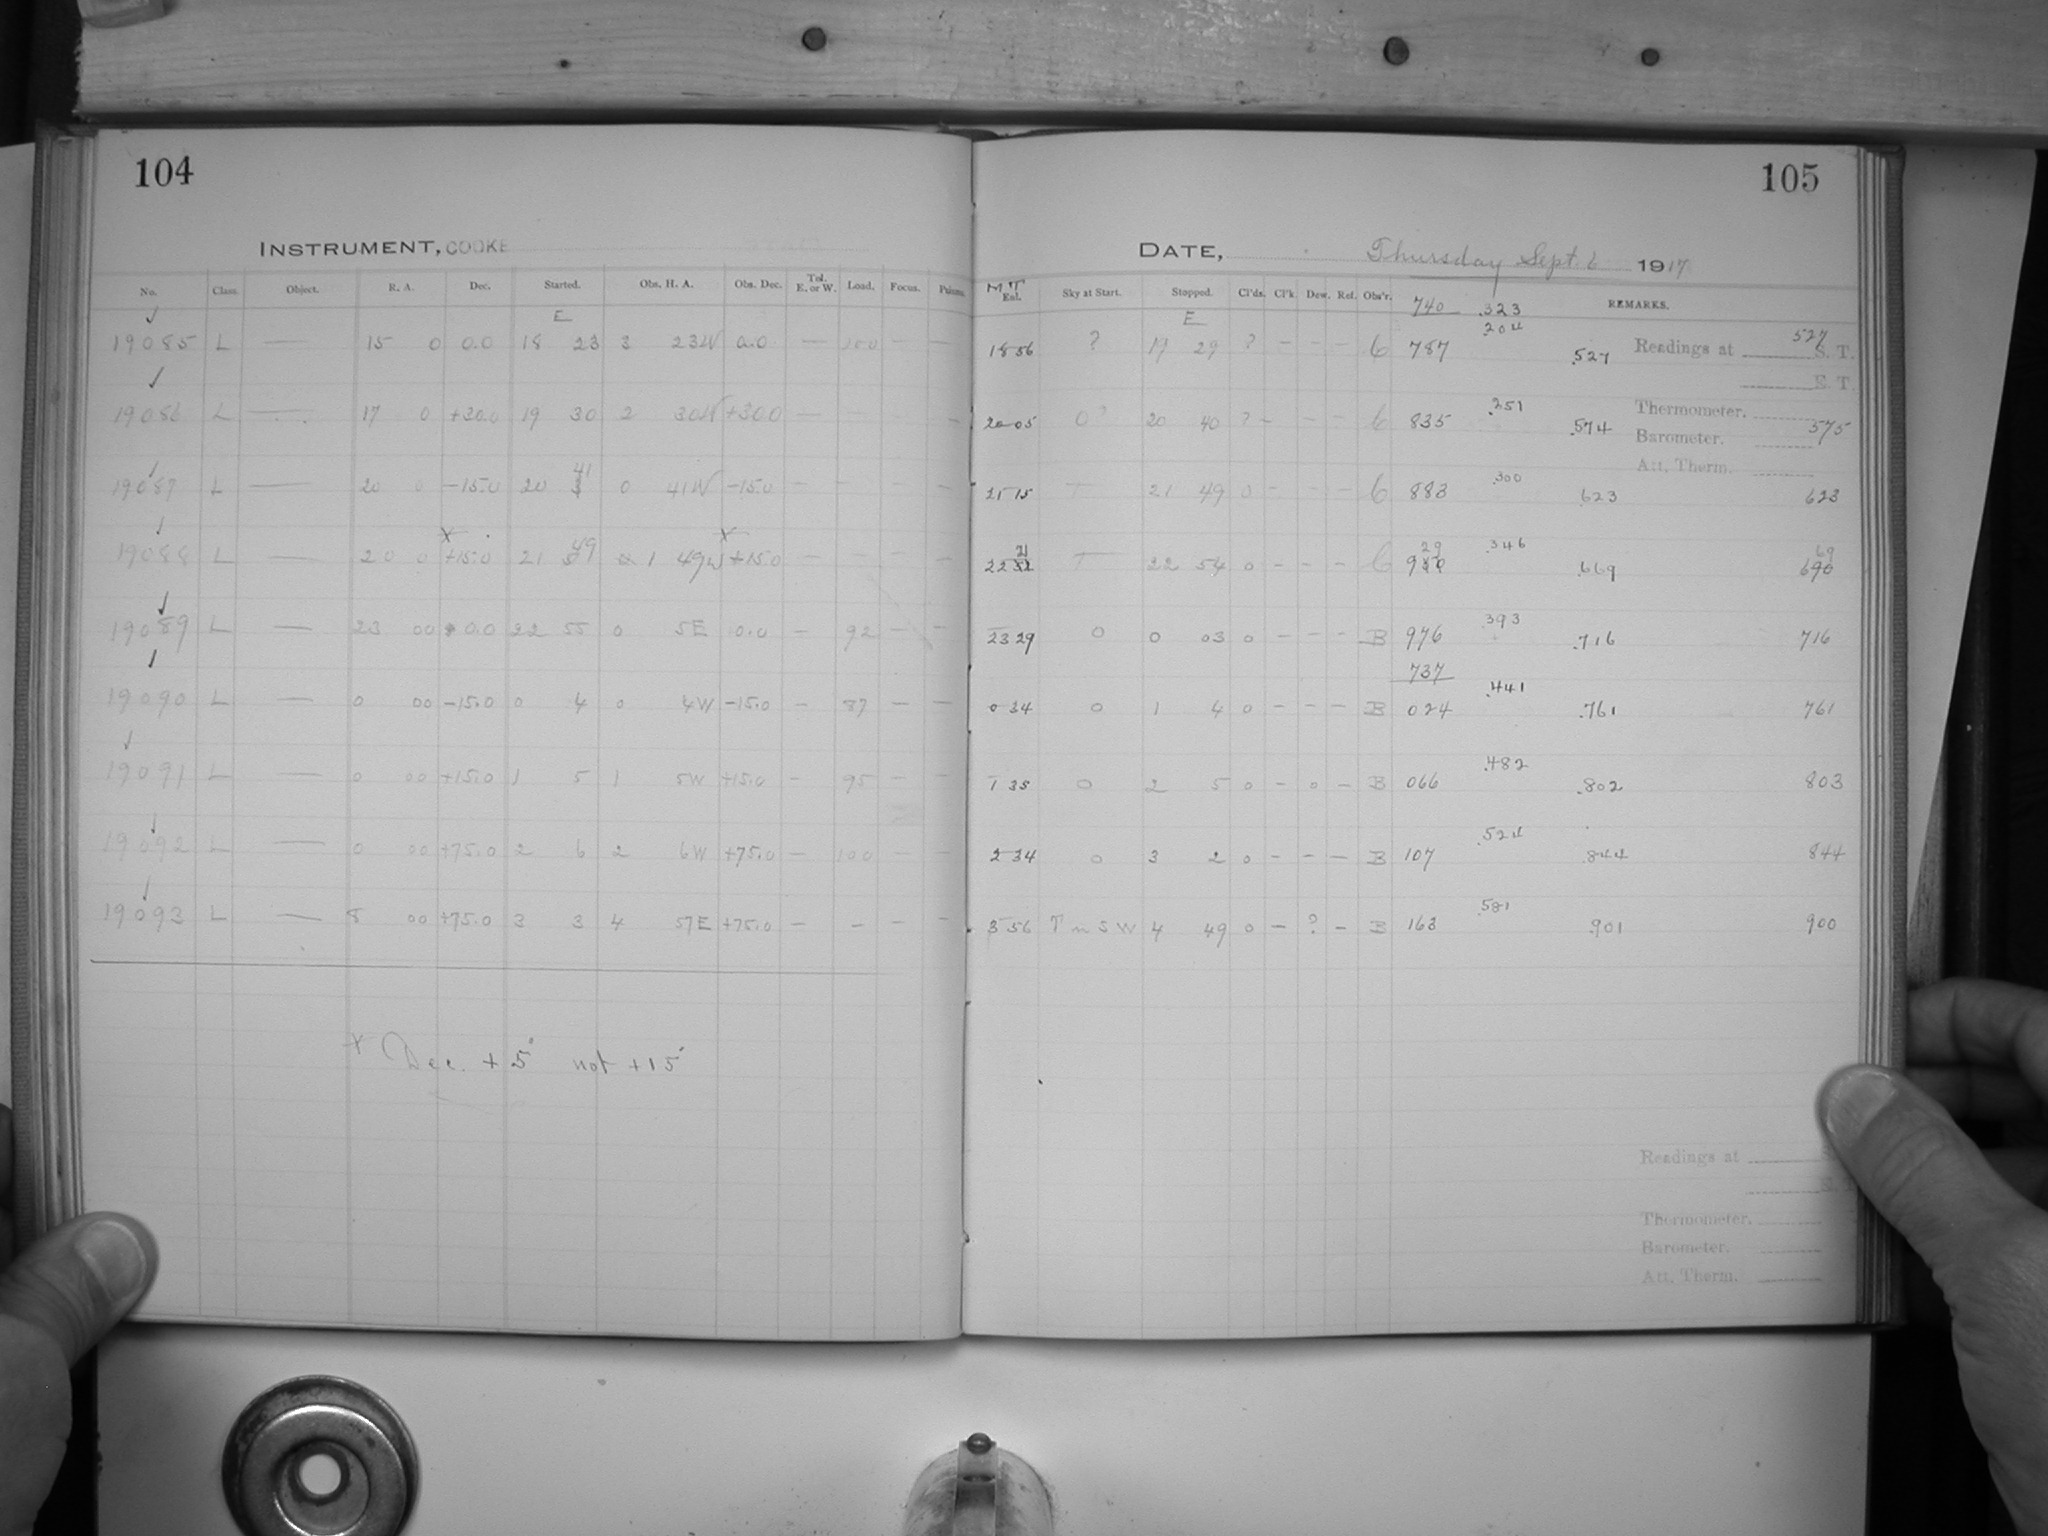 104
INSTRUMENT, COOKE
No. Class. Object. R. A. Dec. Started. Obs. H. A. Obs. Dec. Tel. E. or W. Load. Focus. Prisms.
E
19085 L — 15 0 0.0 18 23 3 23W 0.0 — 100 — —
19086 L — 17 0 +30.0 19 30 2 30W +30.0 — —
41
19087 L — 20 0 −15.0 20 0 41W −15.0 — —
x x
49
19088 L — 20 0 +15.0 21 1 49W +15.0 — —
19089 L — 23 00 0.0 22 55 0 5E 0.0 — 92 — —
19090 L — 0 00 −15.0 0 4 0 4W −15.0 — 87 — —
19091 L — 0 00 +15.0 1 5 1 5W +15.0 — 95 — —
19092 L — 0 00 +75.0 2 6 2 6W +75.0 — 100 — —
19093 L — 8 00 +75.0 3 3 4 57E +75.0 — — — —
x Dec. +5° not +15°
105
DATE, Thursday Sept. 6 1917
M T
Exl. Sky at Start. Stopped. Cl'ds. Cl'k. Dew. Ref. Obs'r. 740 .323 REMARKS.
E .204 527
18 56 ? 19 29 ? — — — 6 787 .527 Readings at S. T.
E. T.
.251 Thermometer.
20 05 0? 20 40 ? — — — 6 835 .574 575
Barometer.
Att. Therm.
.300
21 15 T 21 49 0 — — — 6 883 .623 623
21 29 .346 69
22 T 22 54 0 — — — 6 9 .669 690
.393
23 29 0 0 03 0 — — — B 976 .716 716
737
.441
0 34 0 1 4 0 — — — B 024 .761 761
.482
1 35 0 2 5 0 — 0 — B 066 .802 803
.524
2 34 0 3 2 0 — — — B 107 .844 844
.581
3 56 T in S W 4 49 0 — ? — B 163 .901 900
Readings at
Thermometer.
Barometer.
Att. Therm.